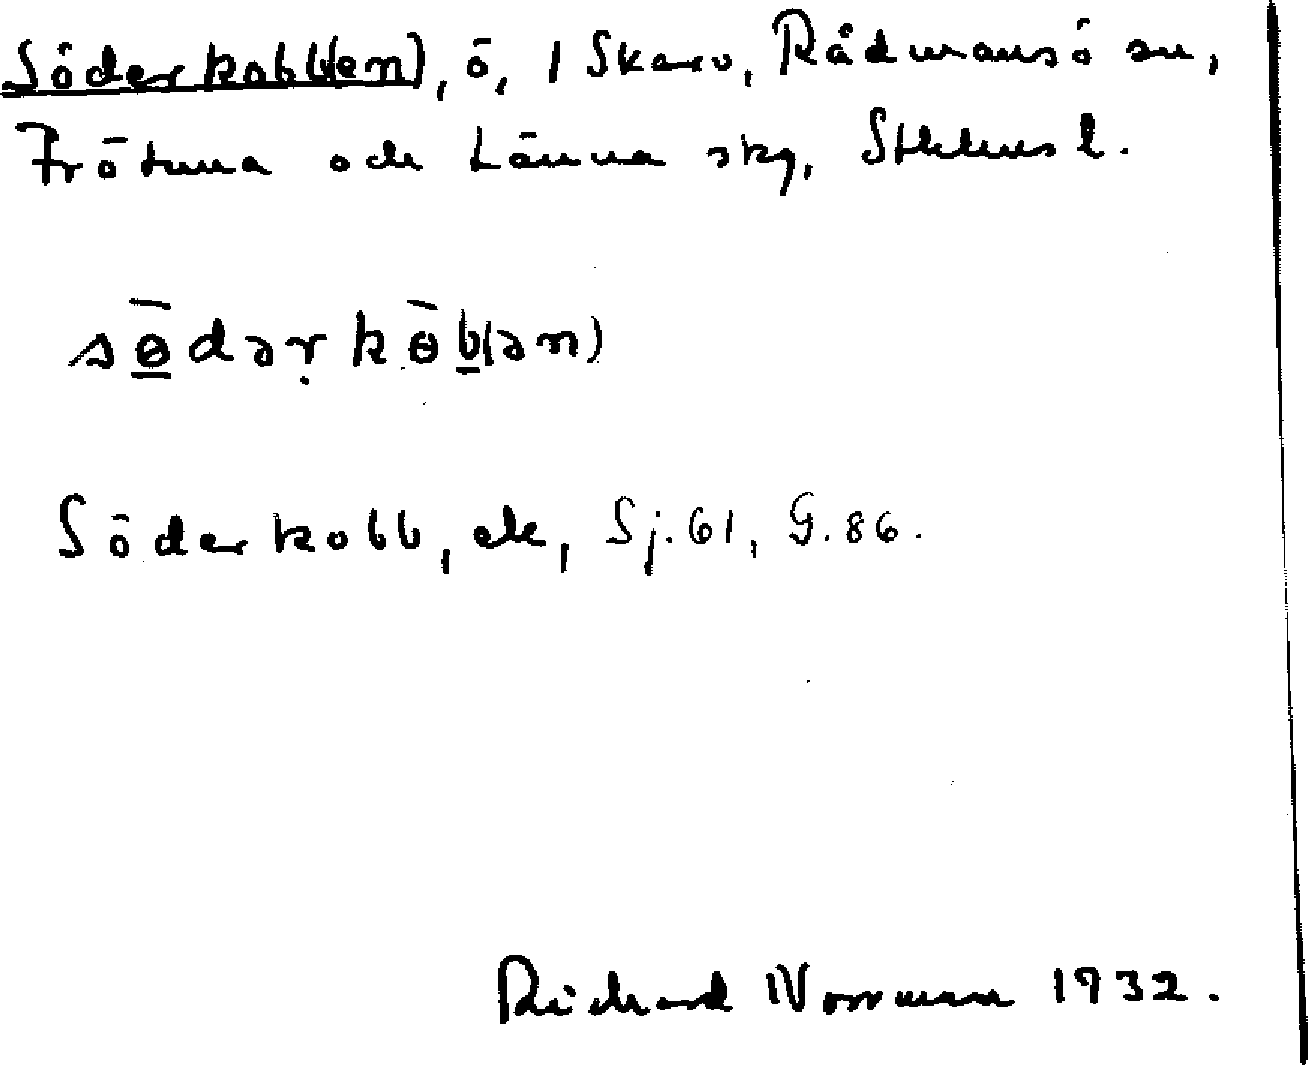 Söderkobb(en), ö, 1 Skarv, Rådmansö sn,
Frötuna och Länna skg, Sthlms l.
sɵ̲̄dər̤kɵ̄b̲(ən)
Söderkobb, ek, Sj.61, G.86.
Richard Norrman 1932.